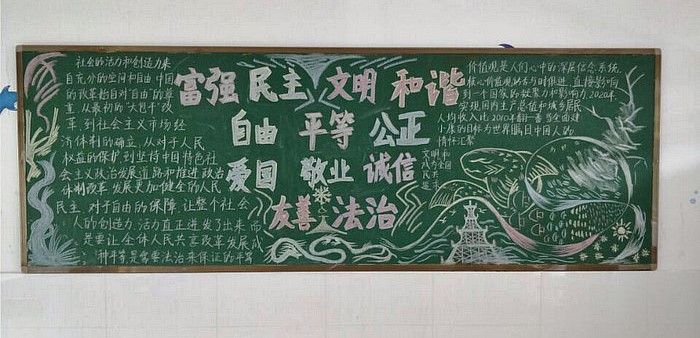 社会的活力和创造力来
自充分的空间和自由 中国
的改革起自对"自由"的尊
重,从最初的"大包干"改
革,到社会主义市场经
济体制的确立,从对于人民
权益的保护,到坚持中国特色社
会主义政治发展道路和推进政治
体制改革 发展更加健全的人民
民主,对于自由的保障,让整个社会
人的创造力,活力真正迸发了出来而
是要让全体人民共享改革发展成
种平等更需要法治来保证的平等
富强 民主 文明 和谐
自由 平等 公正
爱国 敬业 诚信
友善 法治
价值观是人们心中的深层信念系统,
核心价值观能否与时俱进,直接影响
到一个国家的凝聚力和影响力,2020年
实现国内生产总值和城乡居民
人均收入比2010年翻一番,当全面建
小康的目标为世界瞩目中国人的
情怀汇聚